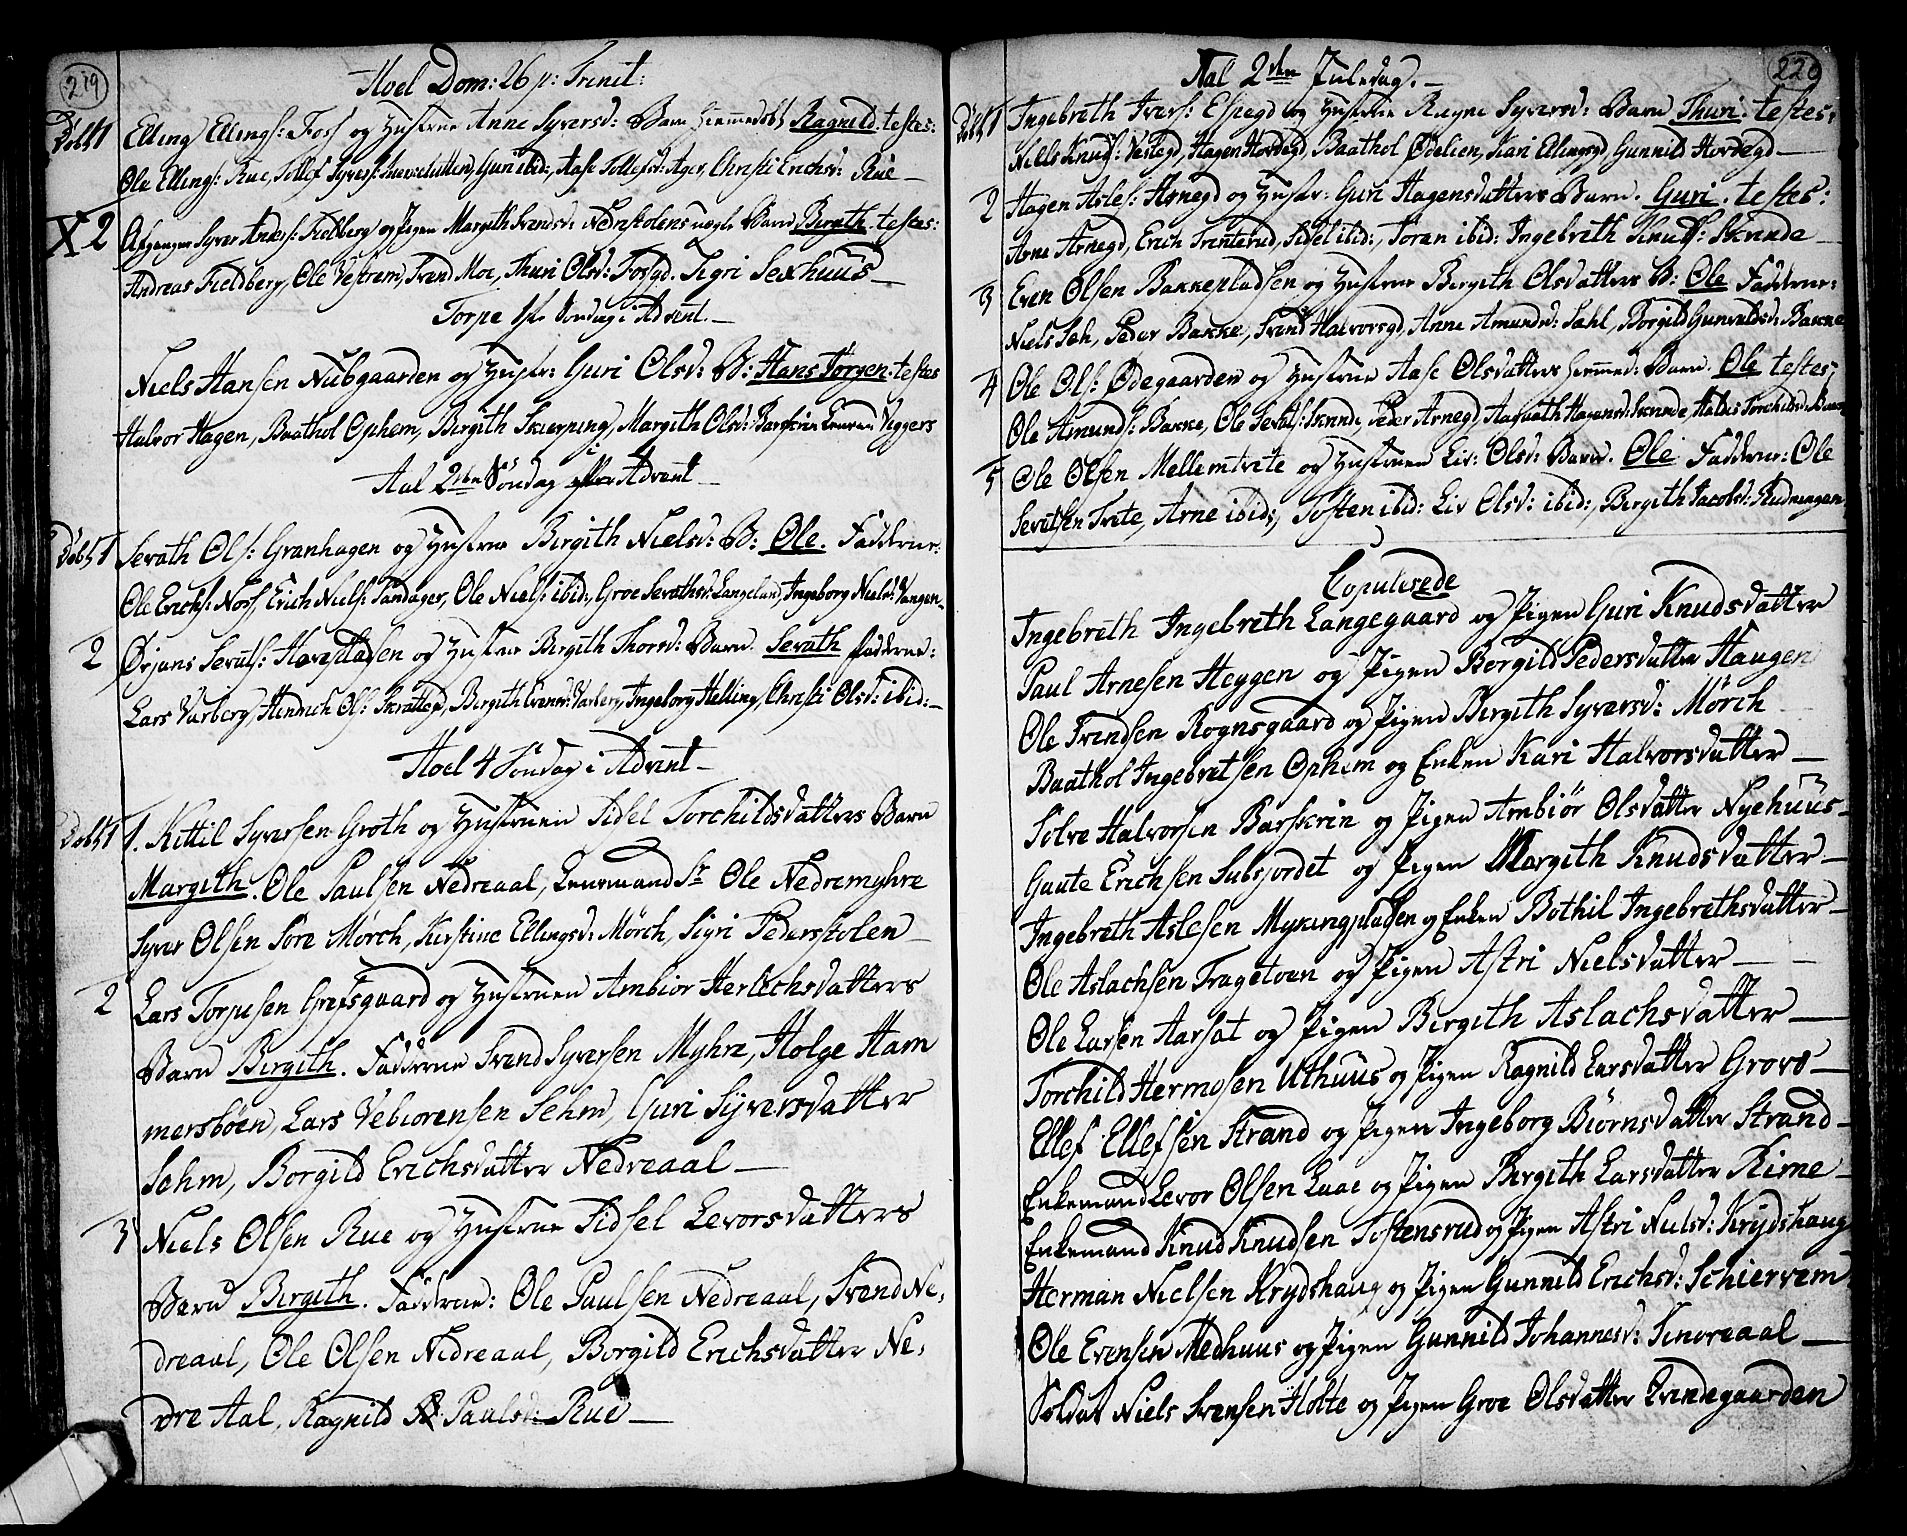 219
Hoel Dom: 26 p: Trinit:
Døbt 1 Elling Ellings: Foss og Hustrue Anne Syversd: Barn hiemmedøbt Ragnild. testes:
Ole Ellings: Rue, Tollef Syvers: Guri ibid:, Aase Tollefsd: Ager, Christi Erichsd: Rue
X 2 Afgangne Syver Anders: Fieldberg og Pigen Margith Svends: Barn Birgith. testes:
Andreas Fieldberg, Ole Vestrem, Svend Moe, Thuri Olsd: Fosgd. Sigri Sexhuus
Torpe 1ste Søndag i Advent.
Niels Hansen Nubgaarden og Hustr: Guri Olsd: B: Hans Jørgen. testes
Halvor Hagen, Baathol Ophem, Birgith Skierping, Margith Olsd: Barskrin Viggers
Aal 2den Søndag i Advent
Døbt 1 Sevath Ols: Granhagen og Hustrue Birgith Nielsd: B: Ole. Fadderne:
Ole Erichs: Noss, Erich Niels: Sandager, Ole Niels: ibid:, Groe Sevathsd: Langeland, Ingeborg Nielsd: Vangen
2 Ørjans Sevats: Havestadsen og Hustrue Birgith Thorsd: Barn. Sevath fadderne:
Lars Varberg, Hendrich Ols: Skrattegd, Birgith Evensd: Varberg, Ingeborg Helling, Christi Olsd: ibid:
Hoel 4 Søndag i Advent
Døbt 1 1. Kittil Syversen Groth og Hustruen Sidsel Torchildsdatters Barn
Margith. Ole Paulsen Nedreaal, Lensmand Sr Ole Nedremyhre
Syver Olsen Søre Mørch, Kirstine Ellingsd: Mørch, Sigri Pedersstolen
2 Lars Torjusen Grefsgaard og Hustruen Ambior Herlichsdatters
Barn Birgith. Fadderne Svend Syversen Myhre, Holge Ham
mersbøen, Lars Vebiørensen Sehm, Guri Syversdatter
Sehm, Borgild Erichsdatter Nedreaal
3 Niels Olsen Rue og Hustrue Sidsel Levorsdatters
Barn Birgith. Fadderne: Ole Paulsen Nedreaal, Svend Ne,
dreaal, Ole Olsen Nedreaal, Borgild Erichsdatter Ne,
dre Aal, Ragnild Paulsd: Rue
220
Aal 2den Juledag.
Døbt 1 Ingebreth Ivers: Espegd og Hustrue Ragne Syversd: Barn Thuri. testes:
Niels Knuds: Vestegd, Hagen Hordegd, Baathol Ødelien, Kari Ellingsgd, Gunnild Hordegd
2 Hagen Asles: Arnegd og Hustr: Guri Hagensdatters Barn. Guri. testes:
Arne Arnegd, Erich Trinterud, Sidsel ibid:, Joran ibid: Ingebreth Knuds: Skrude
3 Even Olsen Bakkepladsen og Hustrue Birgith Olsdatters B: Ole Fadderne:
Niels Seh, Peder Bakke, Svend Halvorsgd, Anne Amundsd: Sahl, Borgild Gunvaldsd: Bakke
4 Ole Ols: Ødegaarden og Hustrue Aase Olsdatters hiemmed: Barn. Ole testes;
Ole Amunds: Bakke, Ole Sevats: Skrude, Peder Arnegd, Aagoth Hagensd: Skrude, Torchildsd:
5 Ole Olsen Mellemtvete og Hustruen Liv: Olsd: Barn. Ole. Fadderne: Ole
Sevatsen Tvete, Arne ibid:, Tosten ibid: Liv Olsd: ibid:, Birgith Jacobsd: Rudningen
Copulerede
Ingebreth Ingebreth Langegaard og Pigen Guri Knudsdatter
Paul Arnesen Heggen og Pigen Borgild Pedersdatter Haugen
Ole Svendsen Rognsgaard og Pigen Birgith Syversd: Mørch
Baathol Ingebretsen Ophem og Enken Kari Halvorsdatter
Solve Halvorsen Barskrin og Pigen Ambiør Olsdatter Nyehuus
Gaute Erichsen Subsjordet og Pigen Margith Knudsdatter
Ingebreth Aslesen Mykingpladsen og Enken Bothil Ingebrethsdatter
Ole Aslachsen Tragetoen og Pigen Astri Nielsdatter
Ole Larsen Aarsat og Pigen Birgith Aslachsdatter
Torchild Hermosen Uthuus og Pigen Ragnild Larsdatter Grove
Ellef Ellefsen Strand og Pigen Ingeborg Biørnsdatter Strand
Enkemand Levor Olsen Laae og Pigen Birgith Larsdatter Rime
Enkemand Knud Knudsen Tostensrud og Pigen Astri Nielsd: Krydshaug
Herman Nielsen Krydshaug og Pigen Gunnild Erichsd: Schiervem
Ole Evensen Medhuus og Pigen Gunnild Johannesd: Knoreaal
Soldat Niels Svensen Holte og Pigen Groe Olsdatter Trindegaarden